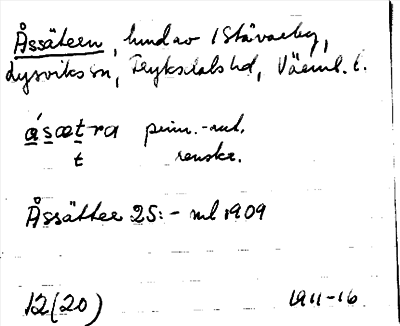 Åssätern, hmd av 1 Stävarby,
Lysviks sn, Fryksdals hd, Värml. l.
åsætra prim.-uut.
t renskr.
Åssätter 25:- ml 1909
12(20) 1911-16